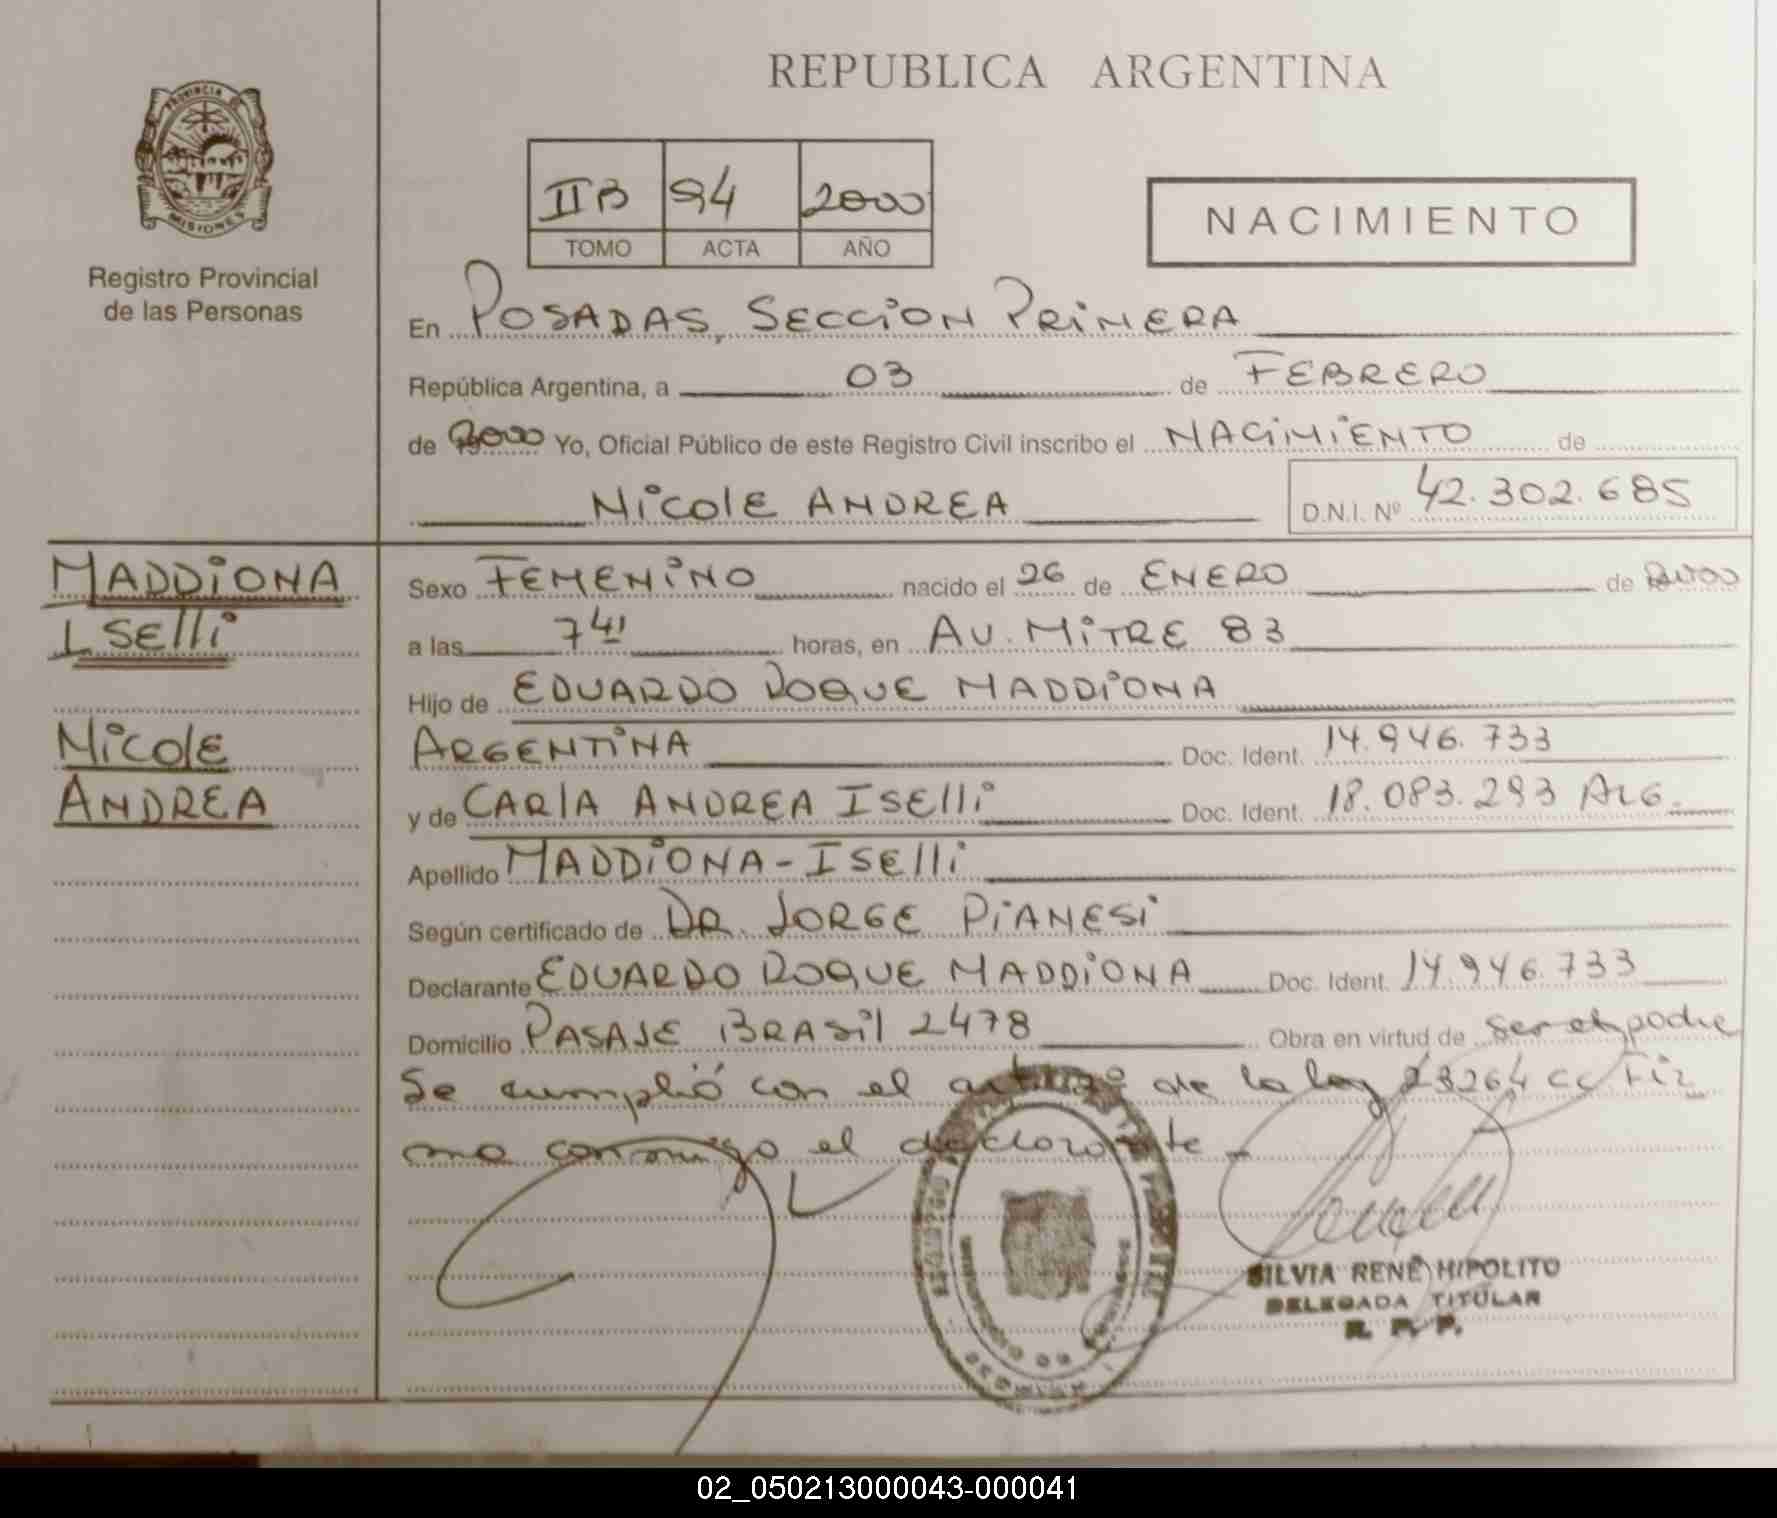 REPUBLICA ARGENTINA
PROVINCIA DE
MISIONES
Registro Provincial
de las Personas
IIB 94 2000
TOMO ACTA AÑO
NACIMIENTO
En POSADAS, SECCION PRIMERA
República Argentina, a 03 de FEBRERO
de 2000 Yo, Oficial Público de este Registro Civil inscribo el NACIMIENTO de
NICOLE ANDREA D.N.I. Nº 42.302.685
MADDIONA
ISELLI
NICOLE
ANDREA
Sexo FEMENINO nacido el 26 de ENERO de 2000
a las 7 41 horas, en AV. MITRE 83
Hijo de EDUARDO ROQUE MADDIONA
ARGENTINA Doc. Ident. 14.946.733
y de CARLA ANDREA ISELLI Doc. Ident. 18.083.293 ARG.
Apellido MADDIONA-ISELLI
Según certificado de DR. JORGE PIANESI
Declarante EDUARDO ROQUE MADDIONA Doc. Ident. 14.946.733
Domicilio PASAJE BRASIL 2478 Obra en virtud de ser el padre
Se cumplió con el de la ley 23264 CC Fir
ma conmigo el declarante
SILVIA RENÉ HIPOLITO
DELEGADA TITULAR
R. P. P.
02_050213000043-000041